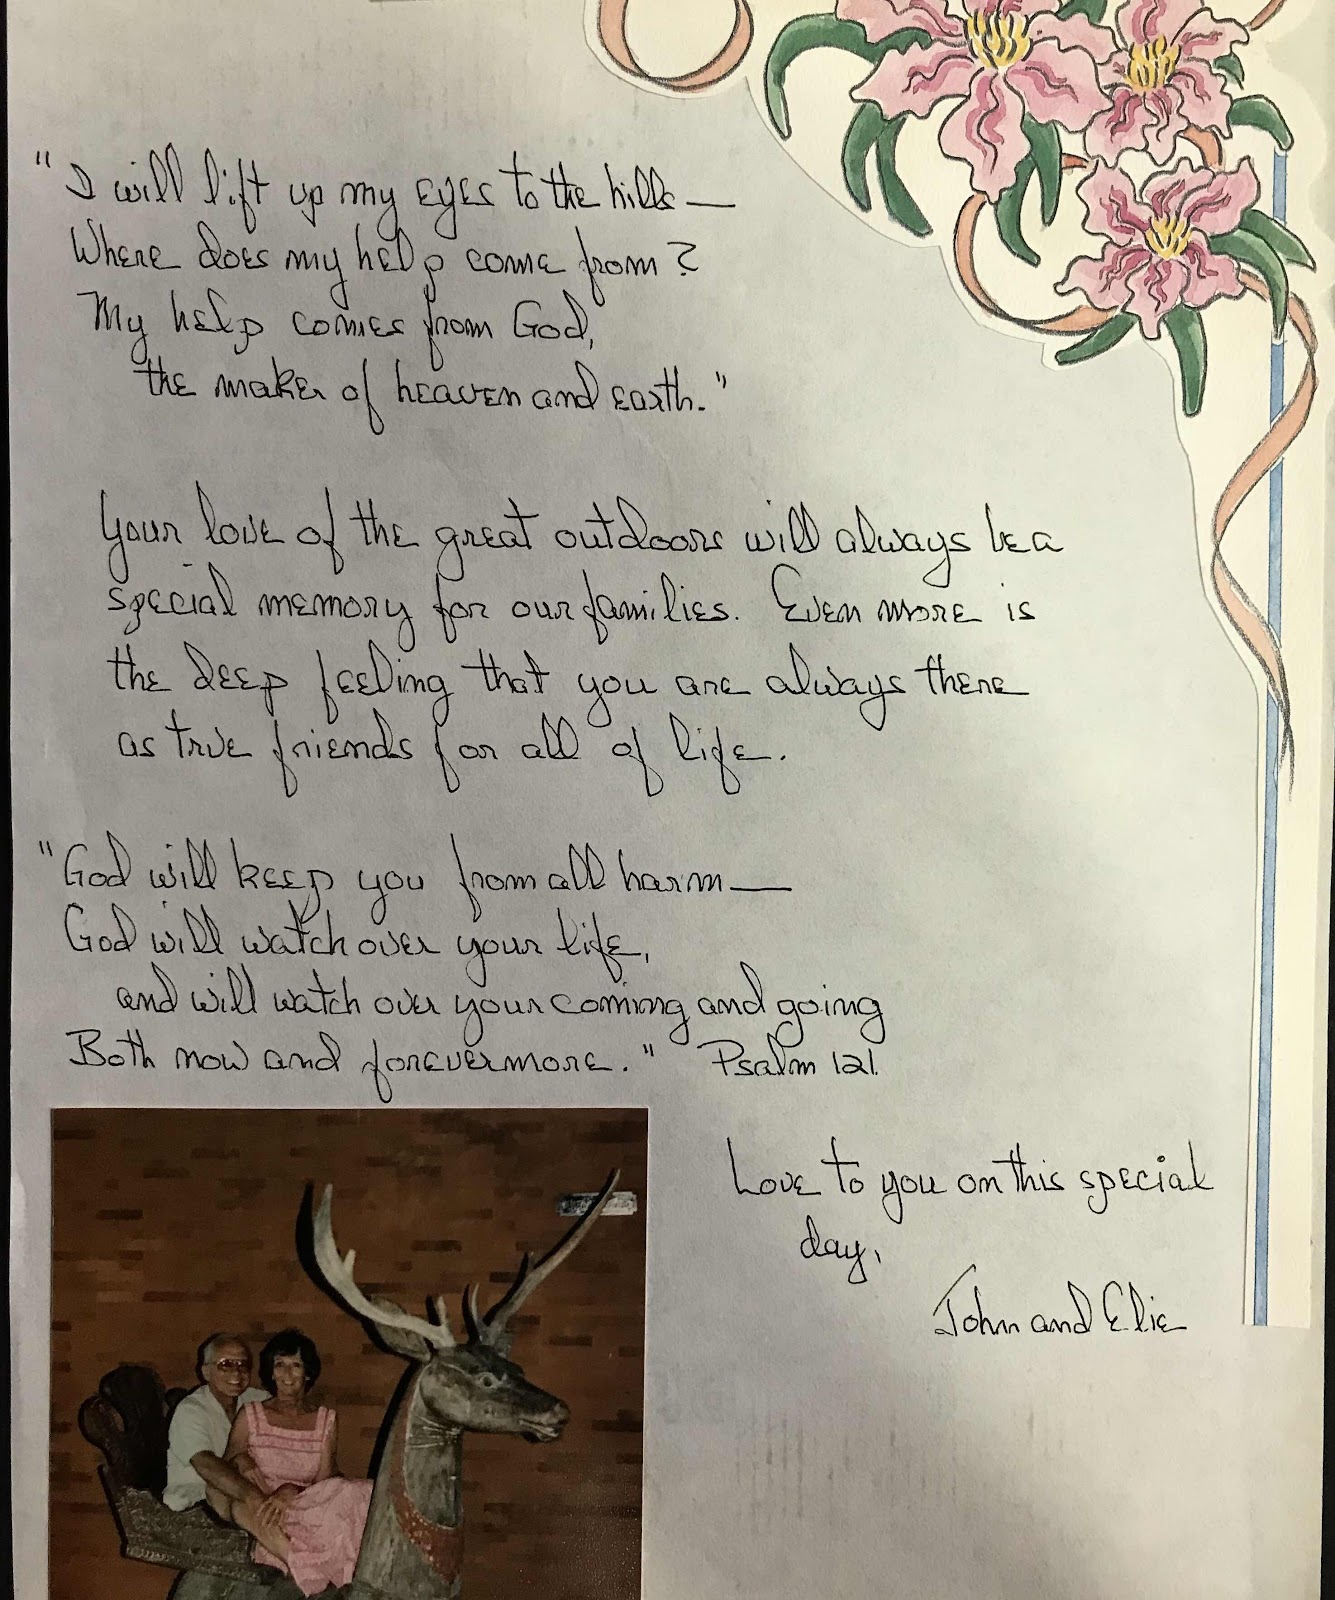 "I will lift up my eyes to the hills —
Where does my help come from?
My help comes from God,
the maker of heaven and earth."
Your love of the great outdoors will always be a
special memory for our families. Even more is
the deep feeling that you are always there
as true friends for all of life.
"God will keep you from all harm —
God will watch over your life,
and will watch over your coming and going
Both now and forevermore." Psalm 121.
Love to you on this special
day,
John and Elie